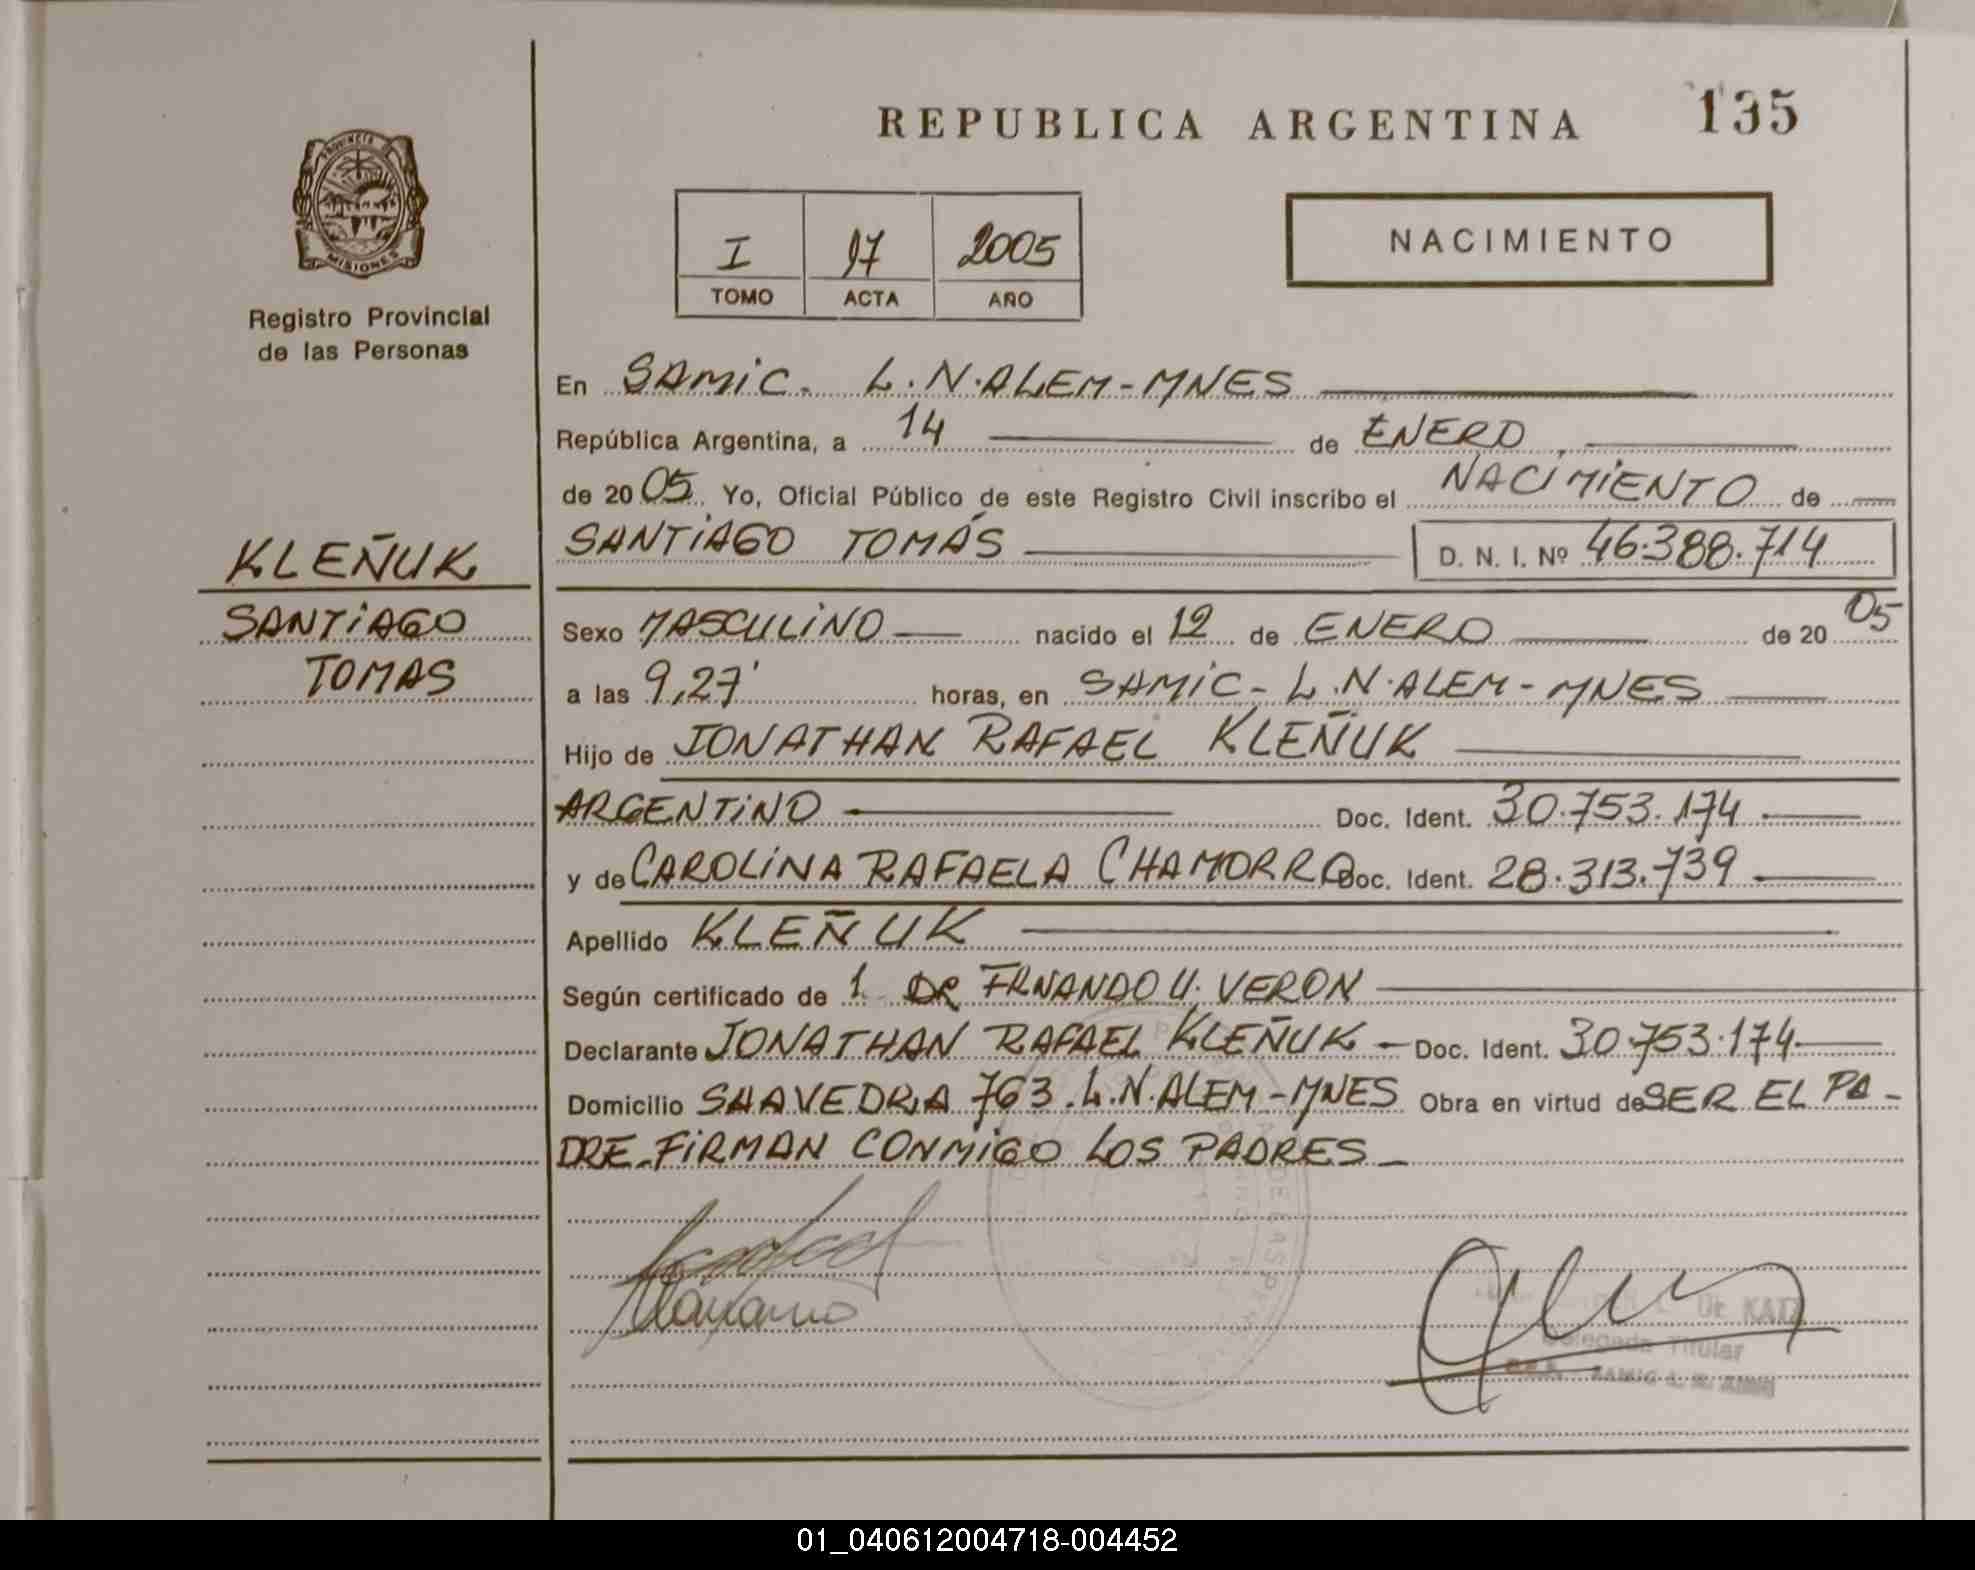 REPUBLICA ARGENTINA 135
PROVINCIA DE
MISIONES
Registro Provincial
de las Personas
I 17 2005
TOMO ACTA AÑO
NACIMIENTO
En SAMIC. L.N.ALEM-MNES
República Argentina, a 14 de ENERO
de 2005. Yo, Oficial Público de este Registro Civil inscribo el NACIMIENTO de
SANTIAGO TOMÁS D. N. I. Nº 46.388.714
KLEÑUK
SANTIAGO
TOMAS
Sexo MASCULINO nacido el 12 de ENERO de 2005
a las 9,27' horas, en SAMIC- L.N.ALEM-MNES
Hijo de JONATHAN RAFAEL KLEÑUK
ARGENTINO Doc. Ident. 30.753.174
y de CAROLINA RAFAELA CHAMORRO Doc. Ident. 28.313.739
Apellido KLEÑUK
Según certificado de 1 DR FRNANDO U. VERON
Declarante JONATHAN RAFAEL KLEÑUK - Doc. Ident. 30.753.174
Domicilio SAAVEDRA 763.L.N.ALEM-MNES Obra en virtud de SER EL PA-
DRE-FIRMAN CONMIGO LOS PADRES-
DE KATZ
Delegada Titular
SAMIC L. N. ALEM
01_040612004718-004452